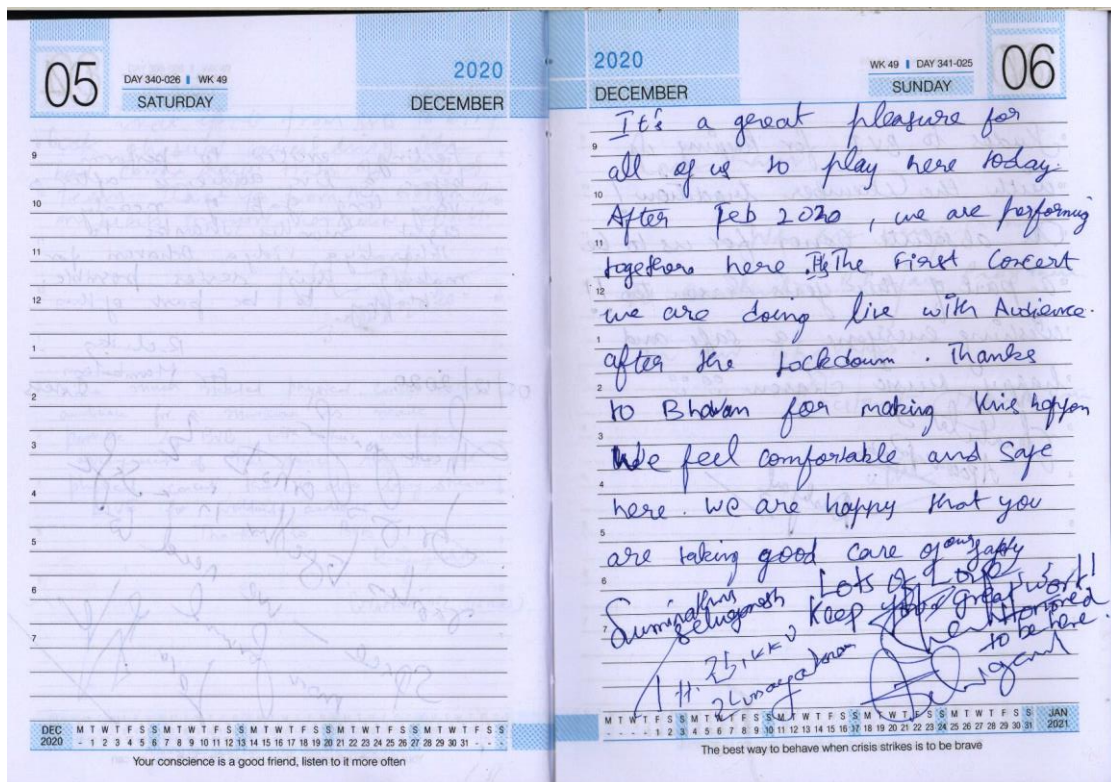 05
DAY 340-026 WK 49
SATURDAY
2020
DECEMBER
9
10
11
12
1
2
3
4
5
6
7
DEC 2020
M T W T F S S M T W T F S S M T W T F S S M T W T F S S M T W T F S S
- 1 2 3 4 5 6 7 8 9 10 11 12 13 14 15 16 17 18 19 20 21 22 23 24 25 26 27 28 29 30 31 - - -
Your conscience is a good friend, listen to it more often
2020
DECEMBER
WK 49 DAY 341-025
SUNDAY
06
It's a great pleasure for
9
all of us to play here today.
10
After Feb 2020, we are performing
11
together here. It's The First Concert
12
we are doing live with Audience.
1
after the Lockdown. Thanks
2
to Bhavan for making this happen
3
We feel comfortable and safe
4
here. We are happy that you
5
are taking good care of our safety
6
Lots of Love
7
Keep great work!
Honored
to be here.
M T W T F S S M T W T F S S M T W T F S S M T W T F S S M T W T F S S
- - - - 1 2 3 4 5 6 7 8 9 10 11 12 13 14 15 16 17 18 19 20 21 22 23 24 25 26 27 28 29 30 31
JAN 2021
The best way to behave when crisis strikes is to be brave